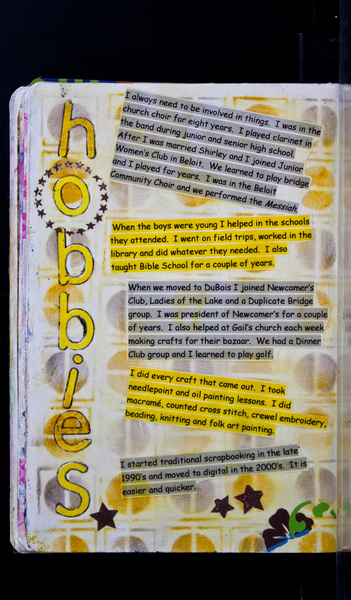 hobbies
I always need to be involved in things. I was in the
church choir for eight years. I played clarinet in
the band during junior and senior high school.
After I was married Shirley and I joined Junior
Women's Club in Beloit. We learned to play bridge
and I played for years. I was in the Beloit
Community Choir and we performed the Messiah.
When the boys were young I helped in the schools
they attended. I went on field trips, worked in the
library and did whatever they needed. I also
taught Bible School for a couple of years.
When we moved to DuBois I joined Newcomer's
Club, Ladies of the Lake and a Duplicate Bridge
group. I was president of Newcomer's for a couple
of years. I also helped at Gail's church each week
making crafts for their bazaar. We had a Dinner
Club group and I learned to play golf.
I did every craft that came out. I took
needlepoint and oil painting lessons. I did
macramé, counted cross stitch, crewel embroidery,
beading, knitting and folk art painting.
I started traditional scrapbooking in the late
1990's and moved to digital in the 2000's. It is
easier and quicker.